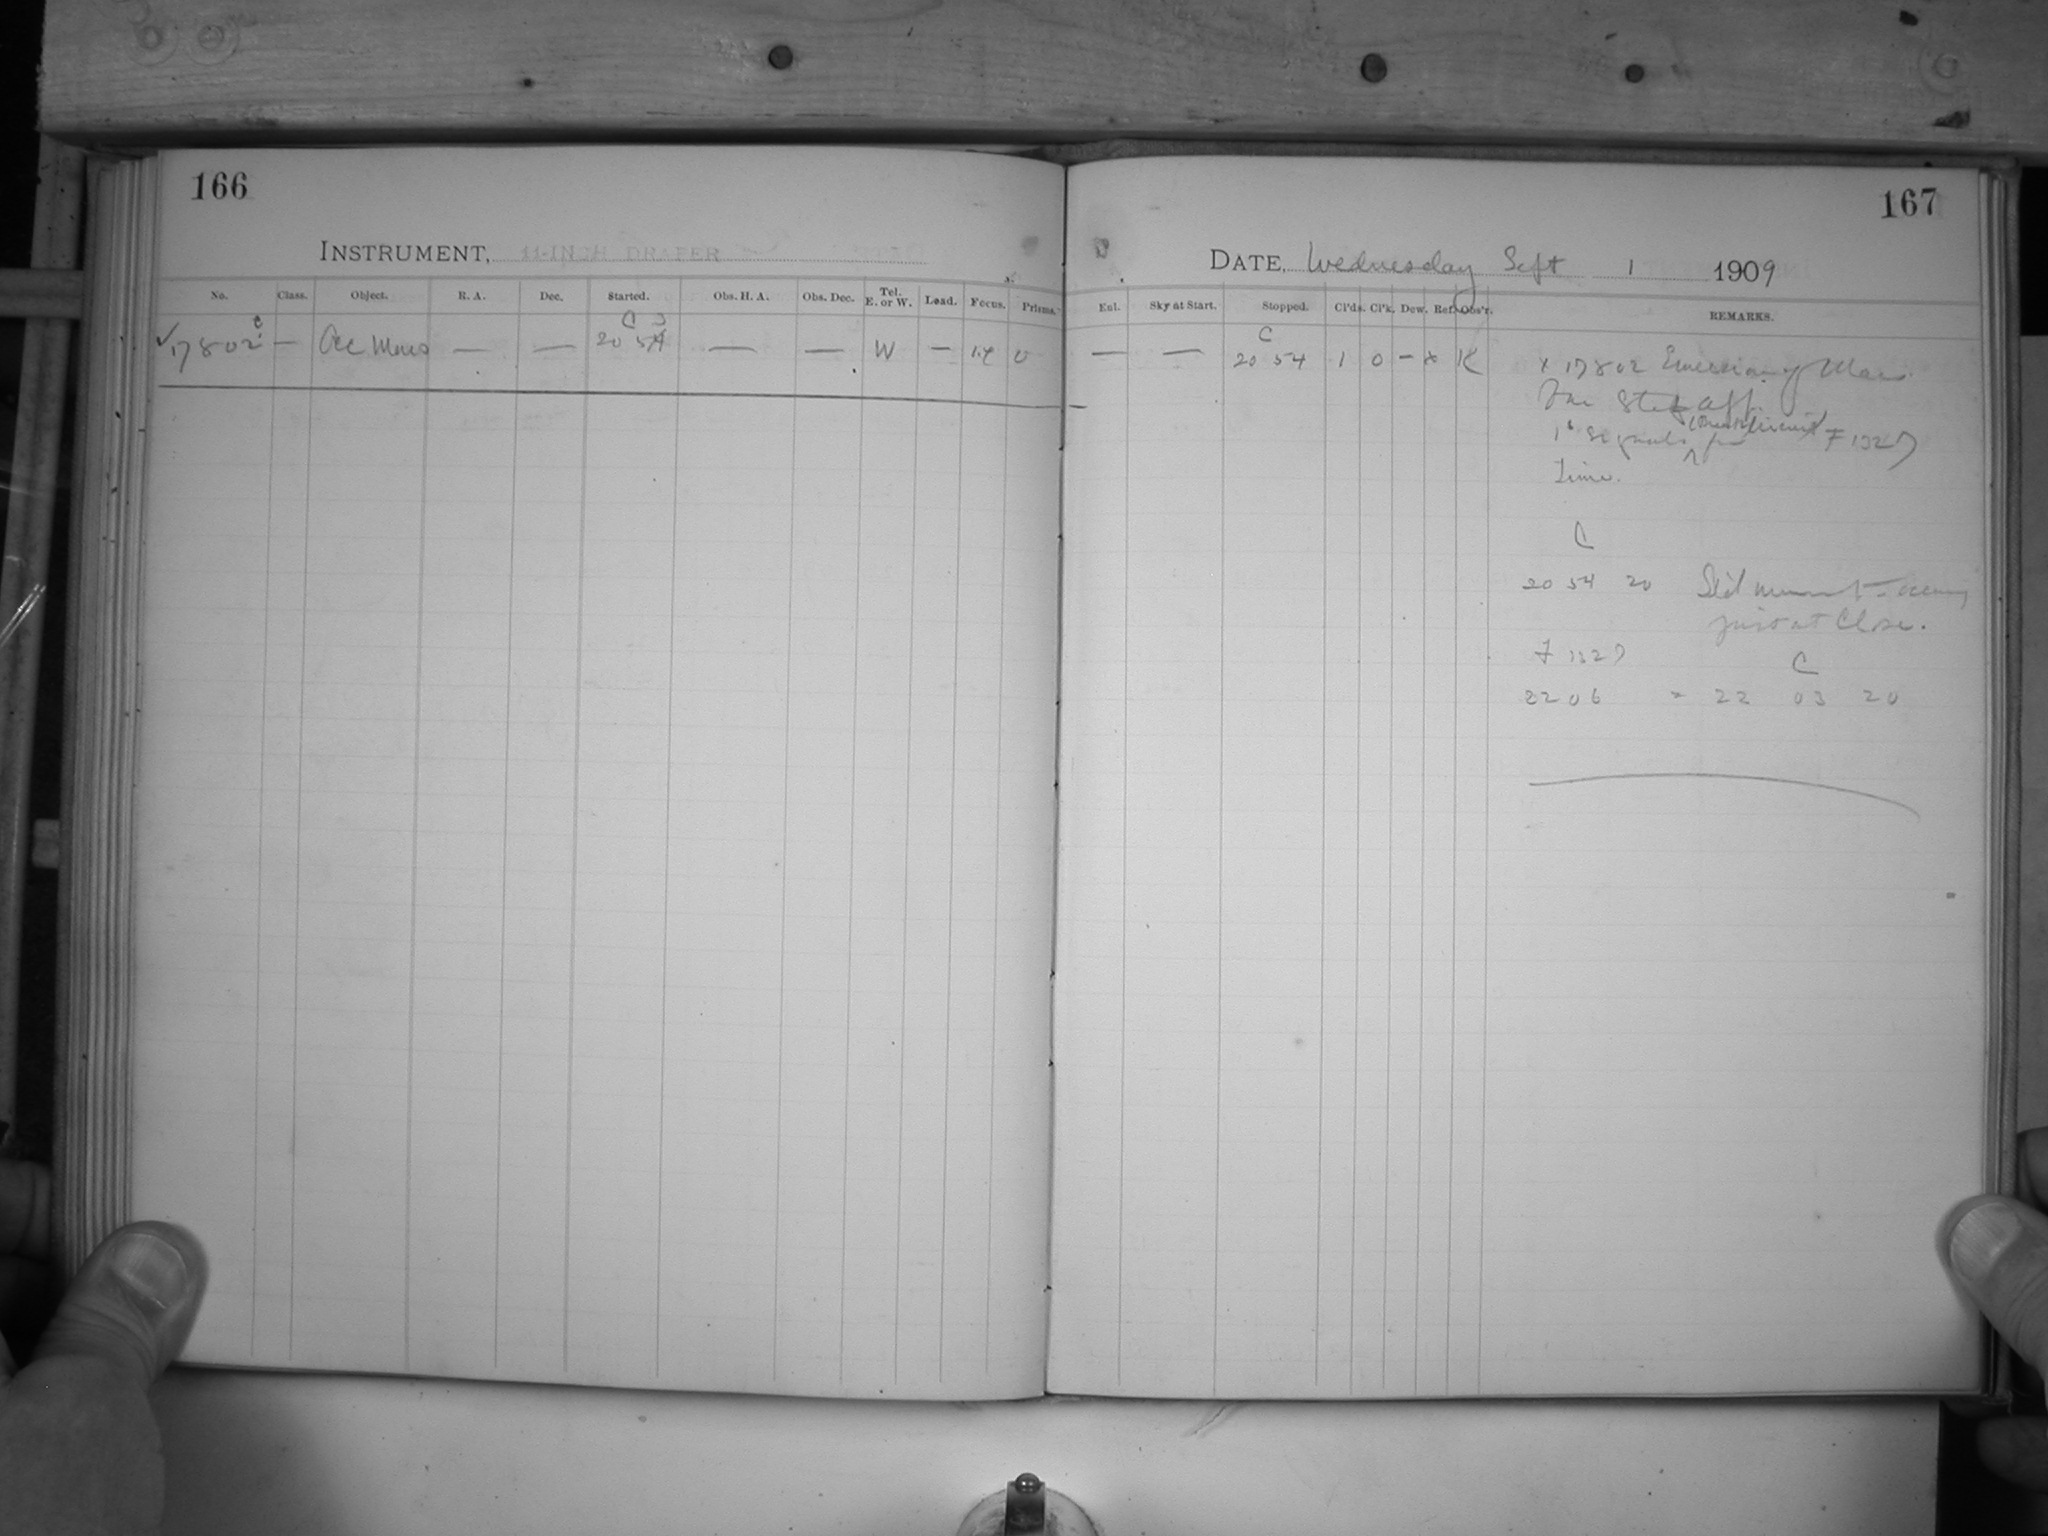 166
INSTRUMENT, 11-INCH DRAPER
No. Class. Object. R. A. Dec. Started. Obs. H. A. Obs. Dec. Tel. E. or W. Load. Focus. Prisms.
C 3
✓17802 — Occ Mars — — 20 54 — — W — 1.4 0
167
DATE, Wednesday Sept 1 1909
Ent. Sky at Start. Stopped. Cl'ds. Cl'k. Dew. Ref. Obs'r. REMARKS.
C
— — 20 54 1 0 — x K
x 17802 Emersion of Mars.
1s signals for F 1327
time.
C
20 54 20
just at Close.
F 1327 C
22 06 = 22 03 20